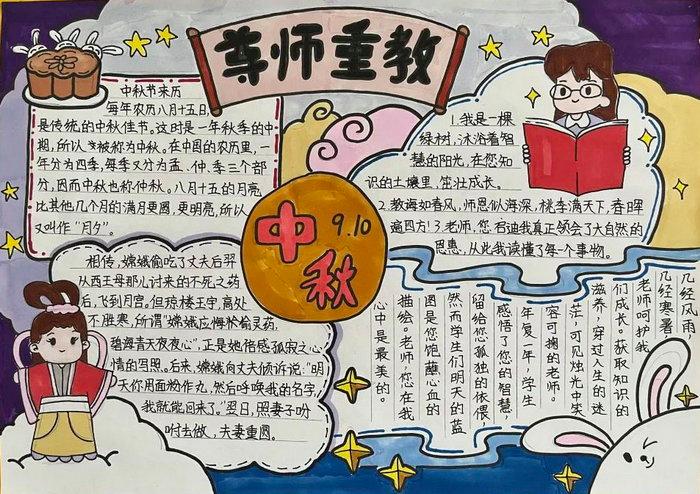 尊师重教
中秋节来历
每年农历八月十五日,
是传统的中秋佳节。这时是一年秋季的中
期,所以被称为中秋。在中国的农历里,一
年分为四季,每季又分为孟、仲、季三个部
分,因而中秋也称仲秋。八月十五的月亮
比其他几个月的满月更圆,更明亮,所以
又叫作“月夕”。
1.我是一棵
绿树,沐浴着智
慧的阳光,在您知
识的土壤里,茁壮成长。
2.教诲如春风,师恩似海深,桃李满天下,春晖
遍四方!3.老师,您
我真正领会了大自然的
恩惠,从此我读懂了每一个事物。
中秋
9.10
相传,嫦娥偷吃了丈夫后羿
从西王母那儿讨来的不死之药
后,飞到月宫。但琼楼玉宇,高处
不胜寒,所谓“嫦娥应悔偷灵药,
碧海青天夜夜心”,正是她倍感孤寂之心
情的写照。后来,嫦娥向丈夫倾诉说:“明
天你用面粉作丸,然后呼唤我的名字,
我就能回来了。”翌日,照妻子吩
咐去做,夫妻重圆。
几经风雨,
几经寒暑,
老师呵护我
们成长。获取知识的
滋养,穿过人生的迷
茫,可见烛光中笑
容可掬的老师。
年复一年,学生
感悟了您的智慧,
留给您孤独的依偎,
然而学生们明天的蓝
图是您饱蘸心血的
描绘。老师,您在我
心中是最美的。